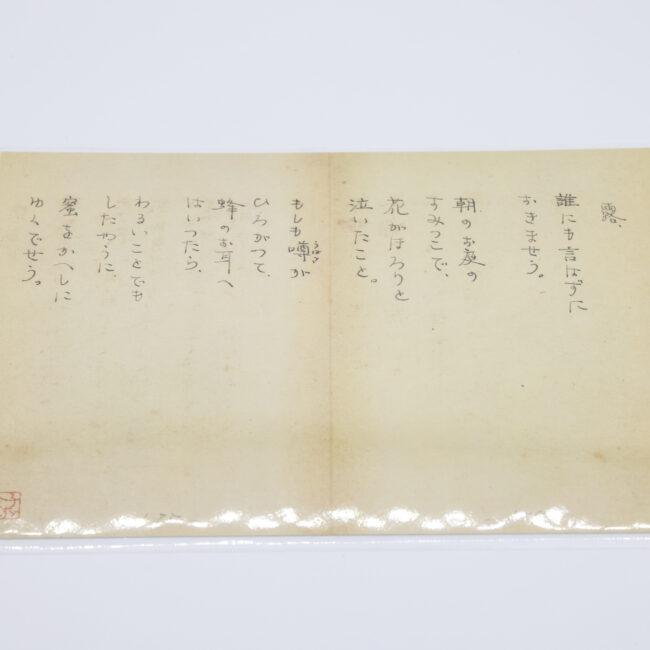 露、
誰にも言はずに
おきませう。
朝のお庭の
すみつこで、
花がほろりと
泣いたこと。
もしも噂が
うはさ
ひろがつて、
蜂のお耳へ
はいつたら、
わるいことでも
したやうに、
蜜をかへしに
ゆくでせう。